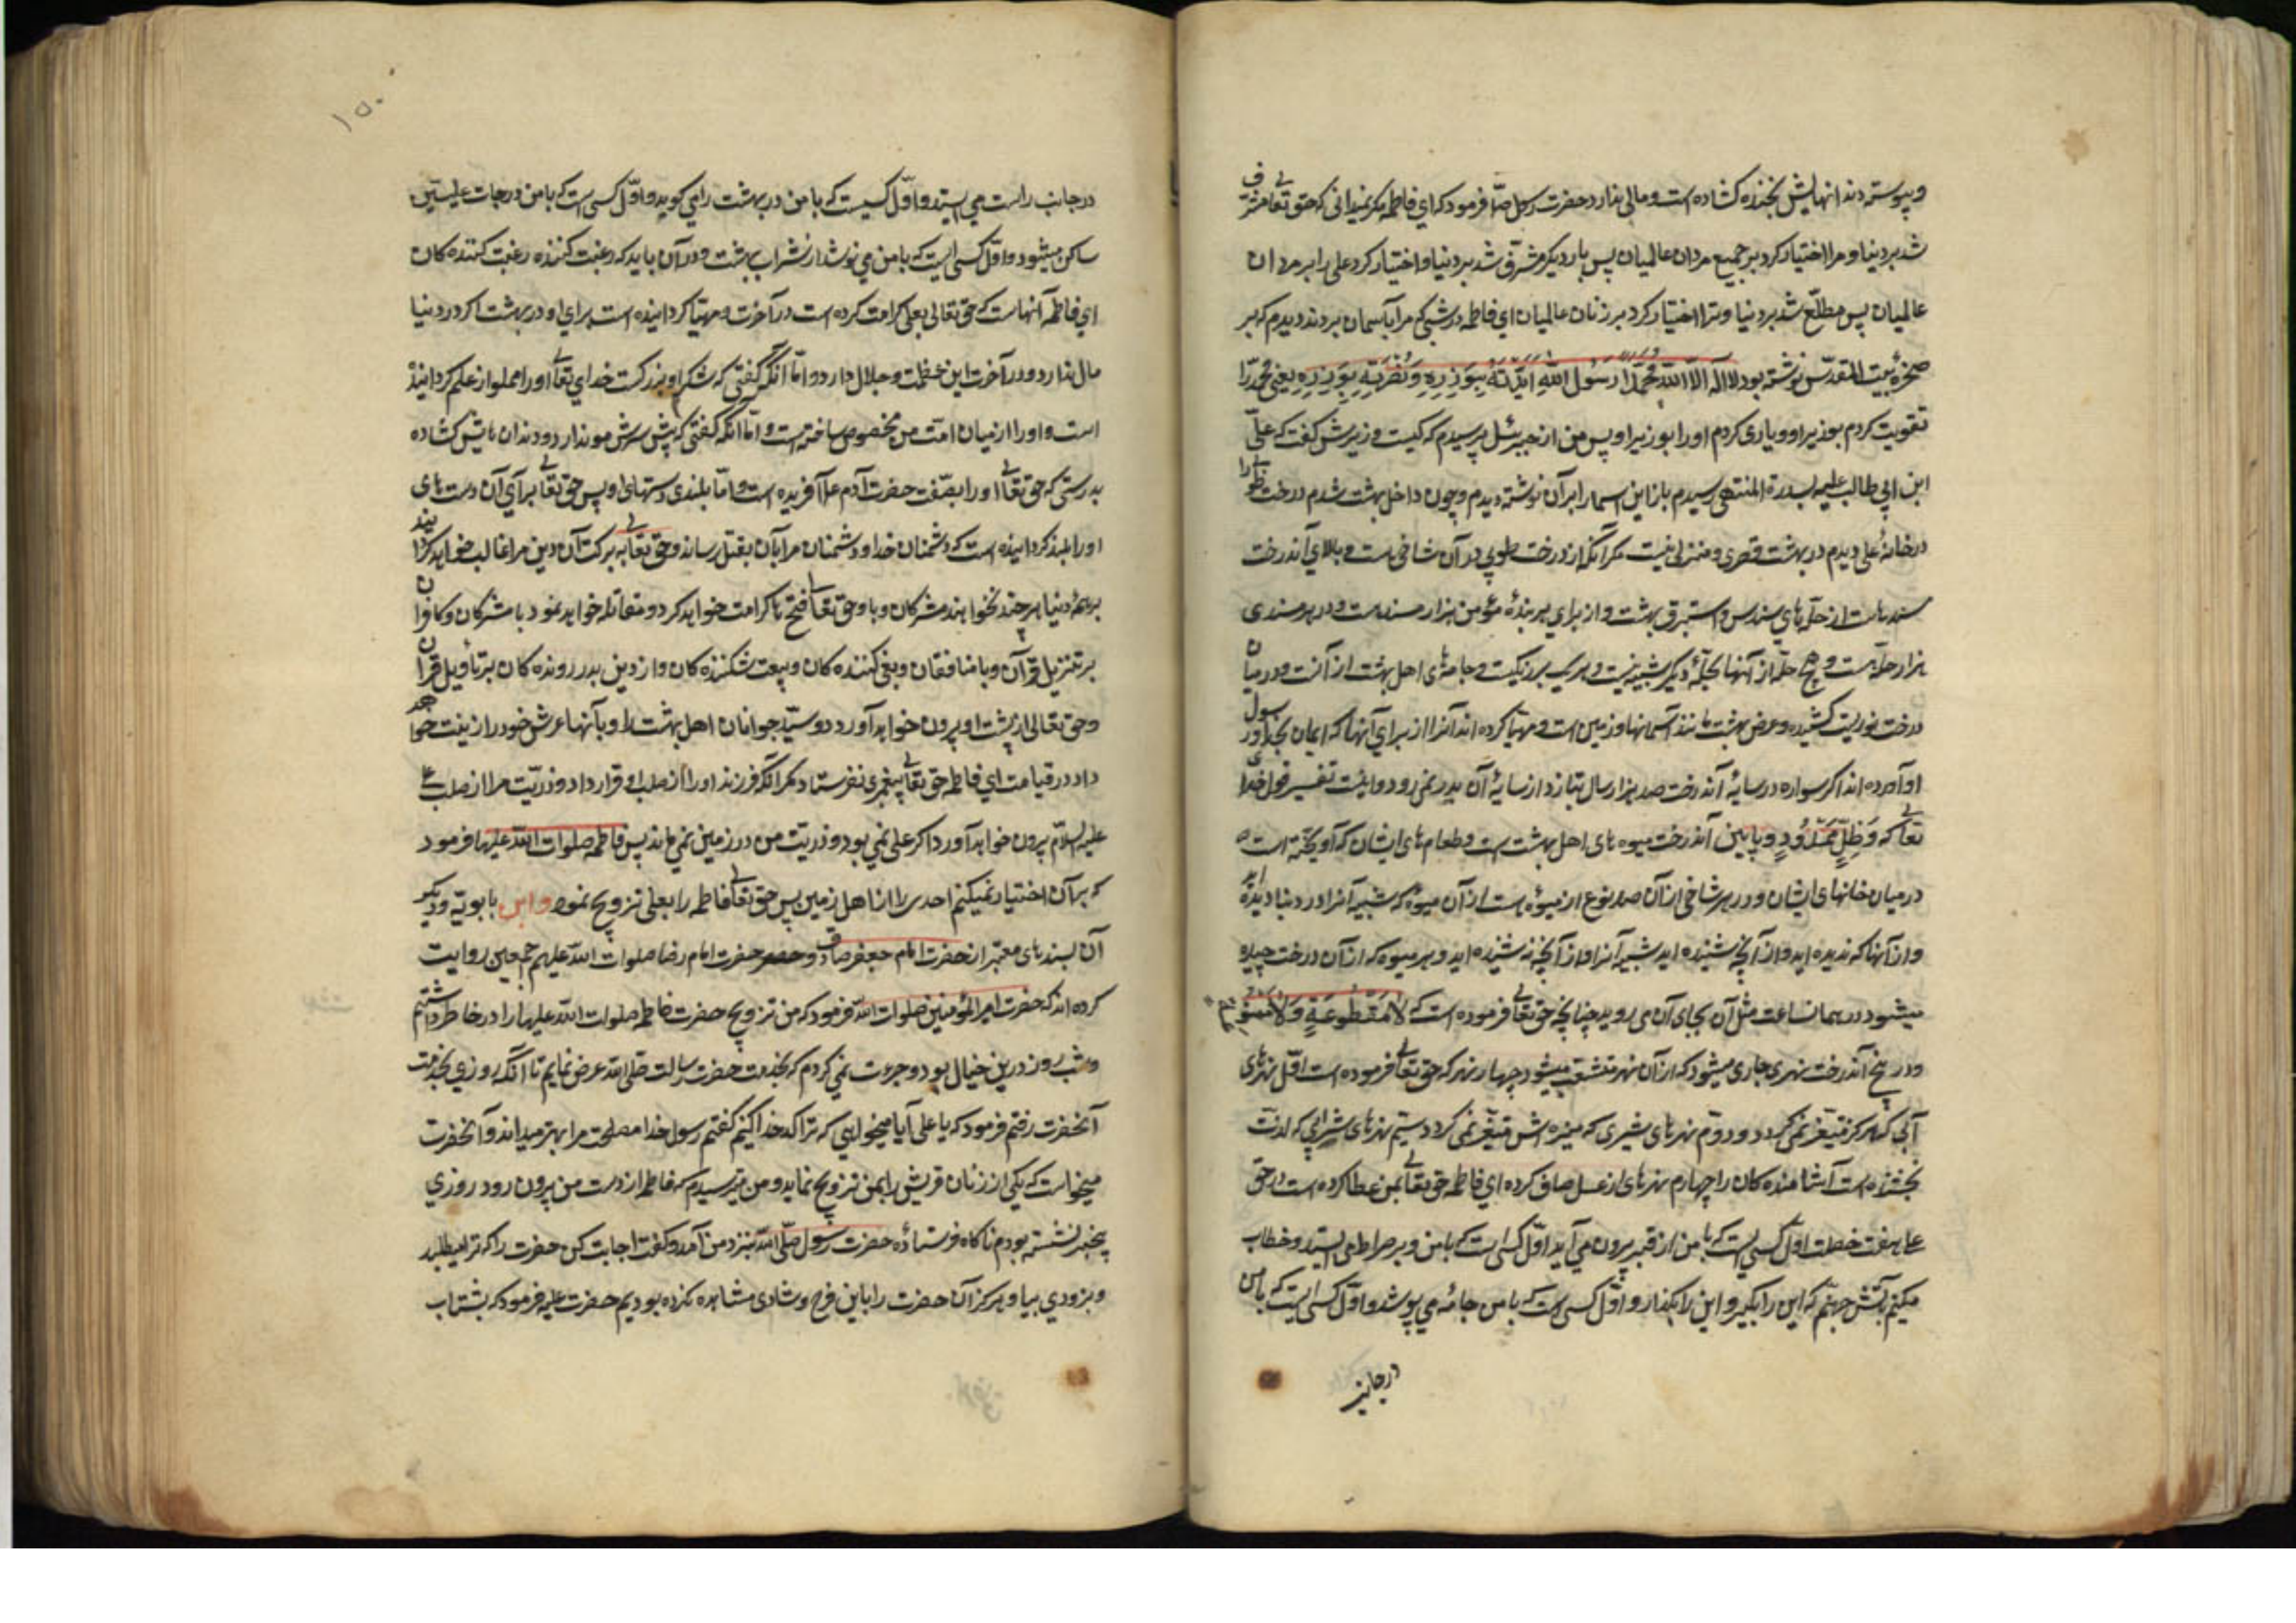 و پیوسته دندانهایش بخنده کشاده است و مالی ندارد حضرت رسول صلّا فرمود که ای فاطمه مکر نمیدانی که حق تعالی مشرف
شد بر دنیا و مرا اختیار کرد بر جمیع مردان عالمیان پس بار دیکر مشرّف شد بر دنیا و اختیار کرد علی را بر مردان
عالمیان پس مطلّع شد بر دنیا و ترا اختیار کرد بر زنان عالمیان ای فاطمه در شبی که مرا بآسمان بردند دیدم که بر
صخرهٔ بیت المقدّس نوشته بود لا اله الّا اللّه محمّدا رسول اللّه ایّدته بوزیره و نصرته بوزیره یعنی محمّد را
تقویت کردم بوزیر او و یاری کردم اورا بوزیر او پس من از جبرئیل پرسیدم که کیست وزیرش کفت که علیّ
ابن ابی طالب علیه بسدرة المنتهی رسیدم باز این اسما را بر آن نوشته دیدم و چون داخل بهشت شدم درخت طوبی را
در خانهٔ علی دیدم در بهشت قصری و منزلی نیست مکر آنکه از درخت طوبی در آن شاخی هست و بالای آندرخت
سبدهاست از حلّه های سندس و استبرق بهشت و از برای هر بندهٔ مؤمن هزار هزار سبد است و در هر سبدی
هزار حلّه است و هیچ حلّه از آنها بحلّهٔ دیکر شبیه نیست و هر یک برنکیست و جامه های اهل بهشت از آنست و در میان
درخت نوریست کشیده و عرض بهشت مانند آسمانها و زمین است و مهیّا کرده اند آنرا از برای آنها که ایمان بخدا و رسول
او آورده اند اکر سواره در سایهٔ آندرخت صد هزار سال بتازد از سایهٔ آن بدر نمی رود و اینست تفسیر قول خدای
تعالی که وَظِلٍّ مَمْدُودٍ و پایین آندرخت میوه های اهل بهشت است و طعام های ایشان که آویخته است
در میان خانهای ایشان و در هر شاخی از آن صد نوع از میوه است از آن میوه که شبیه آنرا در دنیا دیده اید
و از آنها که ندیده اید و از آنچه شنیده اید شبیه آنرا و از آنچه نه شنیده اید و هر میوه که از آن درخت چیده
میشود در همان ساعت مثل آن بجای آن می روید چنانچه حق تعالی فرموده است که لا مَقْطُوعَةٍ وَلا مَمْنُوعَةٍ
و در بیخ آندرخت نهری جاری میشود که از آن نهر منشعب میشود چهار نهر که حق تعالی فرموده است اوّل نهرهای
آبی که هرکز متغیّر نمی کردد و دوّم نهرهای شیری که مزه اش متغیّر نمی کردد سیّم نهرهای شرابی که لذّت
بخشنده است آشامنده کان را چهارم نهرهای از عسل صاف کرده ای فاطمه حق تعالی بمن عطا کرده است در حق
علی هفت خصلت اوّل کسی است که با من از قبر بیرون می آید اوّل کسی است که با من و بر صراط می ایستد و خطاب
میکنم بآتش جهنّم که این را بکیر و این را بکذار و اوّل کسی است که با من جامه می پوشد و اوّل کسی است که با من
در جانب
۱۵۰
در جانب راست می ایستد و اوّل کسیست که با من در بهشت را می کوبد و اوّل کسی است که با من در درجات علیّین
ساکن میشود و اوّل کسی است که با من می نوشد از شراب بهشت و در آن باید که رغبت کننده رغبت کننده کان
ای فاطمه آنهاست که حق تعالی بعلی کرامت کرده است در آخرت و مهیّا کردانیده است برای او در بهشت اکر در دنیا
مال ندارد و در آخرت این عظمت و جلال دارد و امّا آنکه کفتی که شکم او بزرکست خدای تعالی اورا مملو از علم کردانیده
است و اورا از میان امّت من مخصوص ساخته است و امّا آنکه کفتی که پیش سرش مو ندارد و دندان هایش کشاده
بدرستی که حق تعالی اورا بصفت حضرت آدم آفریده است و امّا بلندی دستهای او پس حق تعالی برای آن دست های
اورا بلند کردانیده است که دشمنان خدا و دشمنان مرا بآن بقتل رساند و حق تعالی به برکت آن دین مرا غالب خواهد کردانید
بر همهٔ دنیا هر چند نخواهند مشرکان و باو حق تعالی فتح ها کرامت خواهد کرد و مقاتله خواهد نمود با مشرکان و کافران
بر تنزیل قرآن و با منافقان و بغی کننده کان و بیعت شکننده کان و از دین بدر رونده کان بر تأویل قرآن
و حق تعالی از پشت او بیرون خواهد آورد دو سیّد جوانان اهل بهشت را و بآنها عرش خود را زینت خواهد
داد در قیامت ای فاطمه حق تعالی پیغمبری نفرستاد مکر آنکه فرزند اورا از صلب او قرار داد و ذریّت مرا از صلب علی
علیه السلام بیرون خواهد آورد اکر علی نمی بود ذریّت من در زمین نمی ماند پس فاطمه صلوات اللّه علیها فرمود
که بر آن اختیار نمیکنم احدی را از اهل زمین پس حق تعالی فاطمه را بعلی تزویج نمود و ابن بابویه و دیکر
آن بسندهای معتبر از حضرت امام جعفر صادق و حضرت امام رضا صلوات اللّه علیهم اجمعین روایت
کرده اند که حضرت امیر المؤمنین صلوات اللّه فرمود که من تزویج حضرت فاطمه صلوات اللّه علیها را در خاطر داشتم
و شب و روز درین خیال بود و جرءت نمی کردم که بخدمت حضرت رسالت صلی اللّه عرض نمایم تا آنکه روزی بخدمت
آنحضرت رفتم فرمود که یا علی آیا میخواهی که ترا کدخدا کنیم کفتم رسول خدا مصلحت مرا بهتر میداند و آنحضرت
میخواست که یکی از زنان قریش را بمن تزویج نماید و من میترسیدم که فاطمه از دست من بیرون رود روزی
بیخبر نشسته بودم ناکاه فرستاده حضرت رسول صلّی اللّه بنزد من آمد و کفت اجابت کن حضرت را که ترا میطلبد
و بزودی بیا و هرکز آن حضرت را باین فرح و شادی مشاهده نکرده بودیم حضرت علیه فرمود که بشتاب